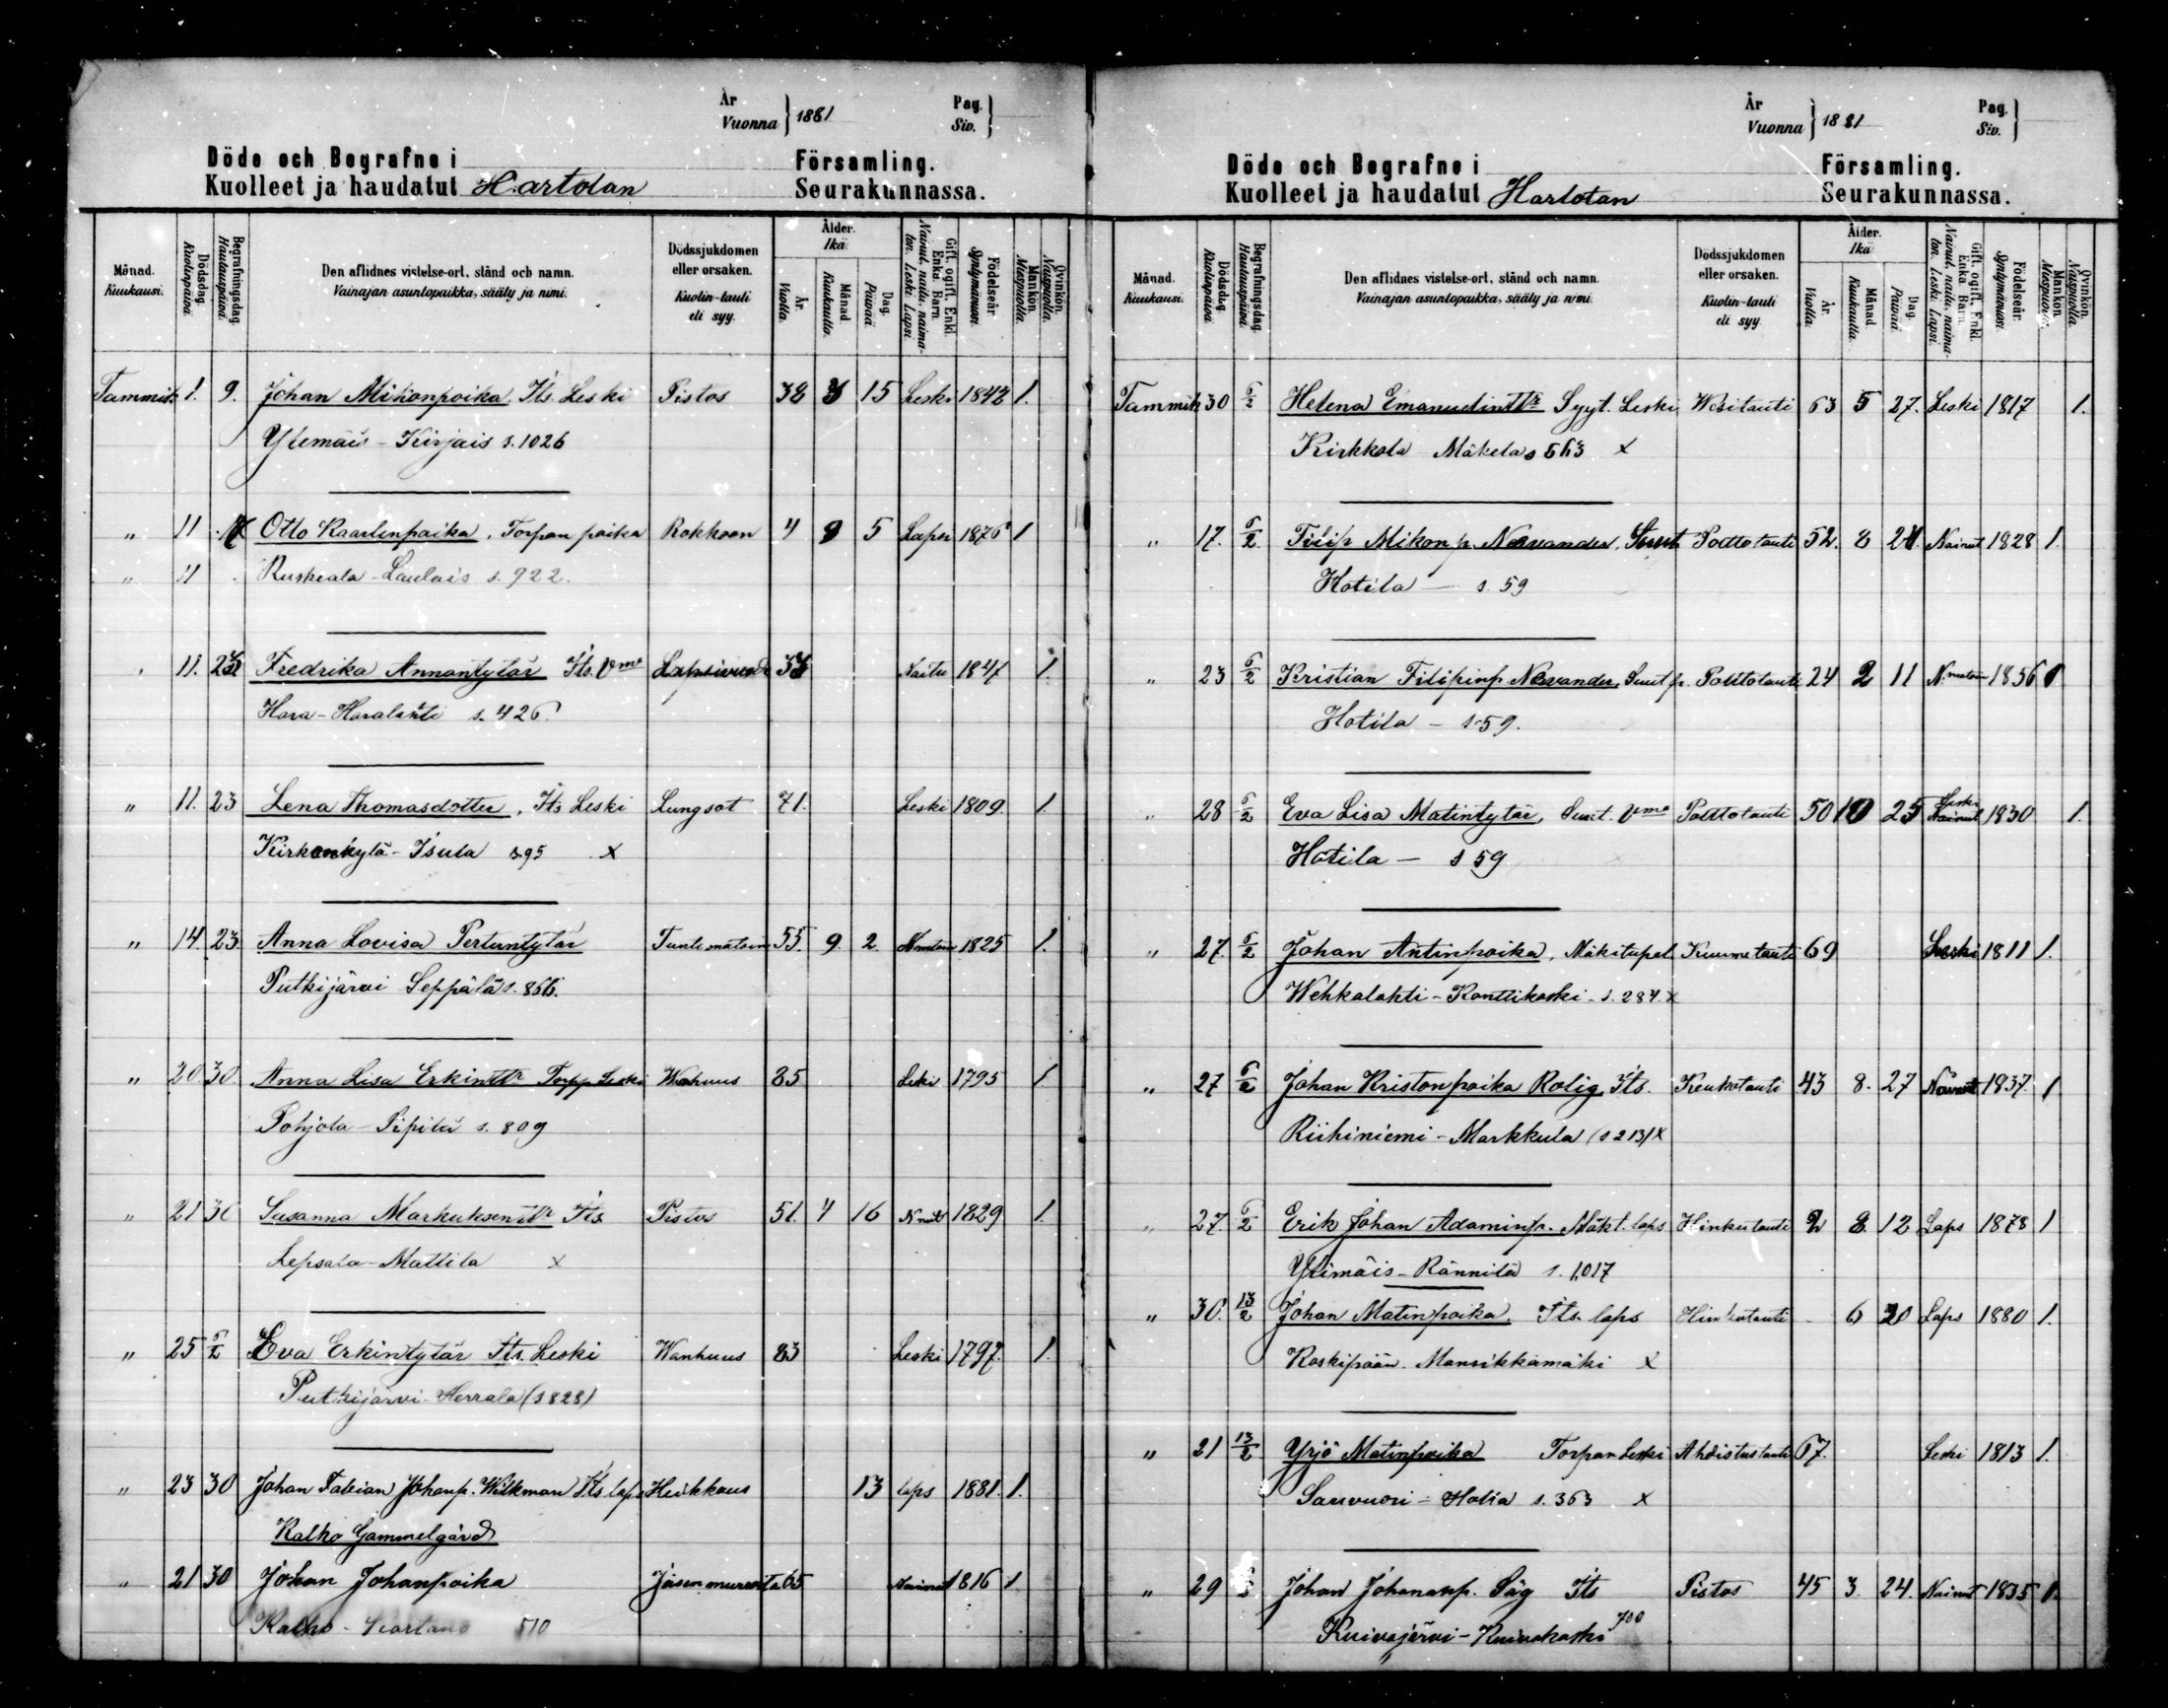 År
Vuonna } 1881
Pag.
Siv. }
Döde och Begrafne i Församling.
Kuolleet ja haudatut Hartolan Seurakunnassa.
Månad. Kuukausi.
Dödsdag. Kuolinpäivä.
Begrafningsdag. Hautauspäivä.
Den aflidnes vistelse-ort, stånd och namn. Vainajan asuntopaikka, sääty ja nimi.
Dödssjukdomen eller orsaken. Kuolin-tauti eli syy.
Ålder. Ikä
År. Vuotta.
Månad. Kuukautta.
Dag. Päivää
Gift, ogift, Enkl. Enka. Barn. Nainut, naitu, naimaton. Leski. Lapsi.
Födelseår. Syntymävuosi.
Mankön. Miespuolia.
Qvinkön. Naispuolia.
Tammik. 1. 9. Johan Mikonpoika Its. Leski Pistos 38 3 15 Leski 1842 1.
Ylemäis - Kirjais s. 1026
" 11 Otto Kaarlenpoika, Torpan poika Rokkoon 4 9 5 Lapsi 1876 1
" 11 Ruskeala - Laulais s. 922.
11. 23 Fredrika Annantytär Its. Vmo 33 Naitu 1847 1.
Hara - Haralahti s. 426.
" 11. 23 Lena Thomasdotter, Its Leski Lungsot 71. Leski 1809. 1.
Kirkonkylä - Isula s. 95 x
" 14. 23. Anna Lovisa Pertuntytär Tuntematoin 55. 9. 2. Nmatoin 1825 1.
Putkijärvi Seppälä s. 866.
" 20. 30. Anna Lisa Erkintr Torpp. Leski Wanhuus 85 Leski 1795 1
Pohjola - Pipilä s. 809
" 21 30 Susanna Markuksentr Its. Pistos 51. 4 16 1829 1.
Lepsala - Mattila x
" 25 6/2 Eva Erkintytär Its. Leski Wanhuus 83 Leski 1797. 1.
Putkijärvi - Herrala (s 828)
" 23 30 Johan Fabian Johanp. Wilkman Its laps Heikkous 13 laps 1881. 1.
Kalho Gammelgård
" 21 30 Johan Johanpoika 65 Nainut 1816 1
Kalho - Kartano 510
År
Vuonna } 1881
Pag.
Siv. }
Döde och Begrafne i Församling.
Kuolleet ja haudatut Hartolan Seurakunnassa.
Månad. Kuukausi.
Dödsdag. Kuolinpäivä.
Begrafningsdag. Hautauspäivä.
Den aflidnes vistelse-ort, stånd och namn. Vainajan asuntopaikka, sääty ja nimi.
Dödssjukdomen eller orsaken. Kuolin-tauti eli syy.
Ålder. Ikä
År. Vuotta.
Månad. Kuukautta.
Dag. Päivää
Gift, ogift, Enkl. Enka. Barn. Nainut, naitu, naimaton. Leski. Lapsi.
Födelseår. Syntymävuosi.
Mankön. Miespuolia.
Qvinkön. Naispuolia.
Tammik 30 6/2 Helena Emanuelintr Syyt. Leski Wesitauti 63 5 27. Leski 1817 1.
Kirkkola Mäkelä s 563 x
" 17. 6/2 Filip Mikonp. Nevander, Suut Polttotauti 52. 8 Nainut 1828 1.
Hotila — s. 59
" 23 6/2 Kristian Filipinp Nevander, Suut p. Polttotauti 24 2 11 Nmatoin 1856 1
Hotila — s. 59.
" 28 6/2 Eva Lisa Matintytär, Suut. Vmo Polttotauti 50 10 25 Leski Nainut 1830 1.
Hotila — s 59
" 27. 6/2 Johan Antinpoika, Mäkitupal Kuumetauti 69 Leski 1811 1.
Wehkalahti - Konttikoski - s. 284. x
" 27 6/2 Johan Kristonpoika Rolig, Its. Keuhotauti 43 8. 27 Nainut 1837. 1
Riihiniemi - Markkula (s 213) x
" 27. 6/2 Erik Johan Adaminp. Mäkt. laps Hinkutauti 2 8 12 Laps 1878 1
Ylimäis - Rännilä s. 1,017
" 30. 13/2 Johan Matinpoika. Its. laps Hinkutauti - 6 20 Laps 1880 1.
Koskipään. Mansikkamäki x
" 21 13/2 Yrjö Matinpoika Torpan Leski Ahdistustauti 67. Leski 1813 1.
Sauvuori - Hotia s. 363 x
" 29 Johan Johananp. Säg Its Pistos 45 3. 24. Nainut 1835 1.
Kuivajärvi - Kuivakoski 700